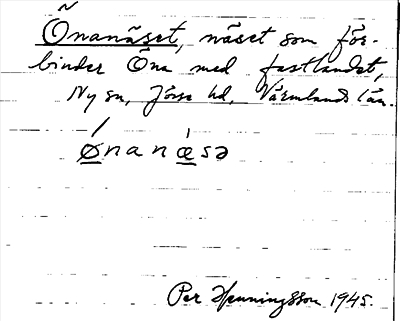 Önanäset, näset som för-
binder Öna med fastlandet,
Ny sn, Jösse hd, Värmlands län.
ǿnanǽsə
Per Henningsson 1945.